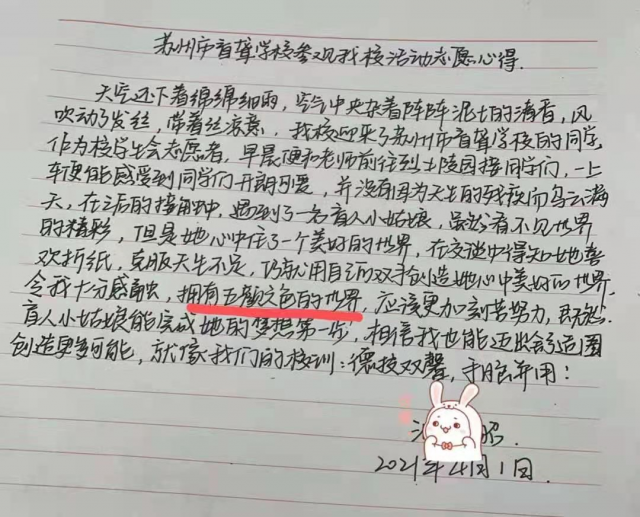 苏州市盲聋学校参观我校活动志愿心得.
天空还下着绵绵细雨，空气中央杂着阵阵泥土的清香，风
吹动了发丝，带着丝凉意，我校迎来了苏州市盲聋学校的同学，
作为校学生会志愿者，早晨便和老师前往烈士陵园接同学们，一上
车便能感受到同学们开朗可爱，并没有因为天生的残疾而乌云满
天，在之后的接触中，遇到了一名盲人小姑娘，虽然看不见世界
的精彩，但是她心中住了一个美好的世界，在交谈中得知她喜
欢折纸，克服天生不足，仍能用自己的双手创造她心中美好的世界.
令我十分感触，拥有五颜六色的世界，应该更加刻苦努力，既然
盲人小姑娘能完成她的梦想第一步，相信我也能迈出舒适圈
创造更多可能，就像我们的校训：德技双馨，手脑并用！
昭.
2021年4月1日.